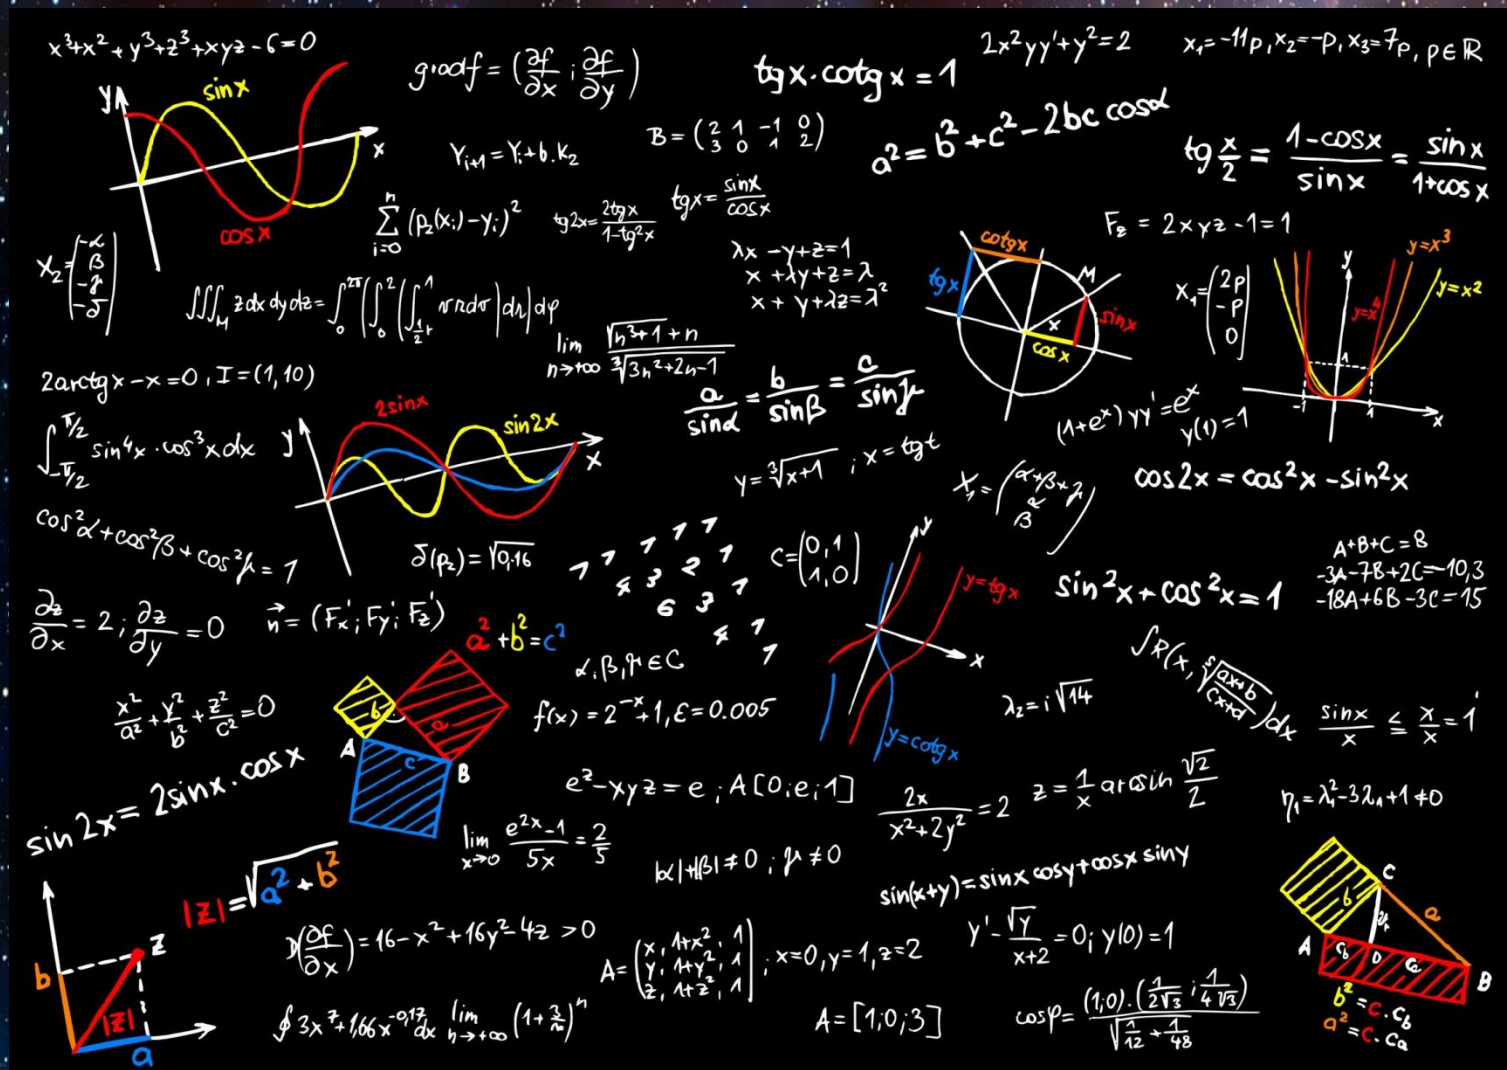 x³+x²+y³+z³+xyz-6=0
gradf = (∂f/∂x ; ∂f/∂y)
tgx·cotgx=1
2x²yy'+y²=2
x₁=-11p, x₂=-p, x₃=7p, p∈ℝ
y
sinx
x
cosx
Y_{i+1}=Y_i+b.K₂
B=(2 1 -1 0
3 0 1 2)
a²=b²+c²-2bc cosα
tg x/2 = (1-cosx)/sinx = sinx/(1+cosx)
n
∑ (p₂(x_i)-y_i)²
i=0
tg2x=2tgx/(1-tg²x)
tgx=sinx/cosx
F_z=2xyz-1=1
X₂=(-α
β
-γ
-δ)
λx-y+z=1
x+λy+z=λ
x+y+λz=λ²
cotgx
tgx
M
sinx
x
cosx
X₁=(2p
-p
0)
y
y=x³
y=x²
y=x⁴
1
-1
1
x
∭_M zdxdydz=∫₀^{2π}(∫₀²(∫_{½r}^1
lim n→+∞ (√(n³+1)+n)/∛(3n²+2n-1)
2arctgx-x=0, I=(1,10)
a/sinα = b/sinβ = c/sinγ
(1+eˣ)yy'=eˣ
y(1)=1
∫_{-π/2}^{π/2} sin⁴x·cos³xdx
y
2sinx
sin2x
x
y=∛(x+1) ; x=tgt
X₁=(α+β+γ
α
β)
cos2x=cos²x-sin²x
cos²α+cos²β+cos²γ=1
δ(p₂)=√0,16
1 1 1 1 1
4 3 2 1
6 3 1
4 1
1
C=(0,1
1,0)
y
y=tgx
x
y=cotgx
sin²x+cos²x=1
A+B+C=8
-3A-7B+2C=-10,3
-18A+6B-3C=15
∂z/∂x=2; ∂z/∂y=0
n⃗=(Fx'; Fy'; Fz')
a²+b²=c²
b
a
c
A
B
α,β,γ∈C
∫R(x, ⁵√((ax+b)/(cx+d)))dx
x²/a²+y²/b²+z²/c²=0
f(x)=2⁻ˣ+1, ε=0.005
λ₂=i√14
sinx/x ≤ x/x=1
sin2x=2sinx.cosx
e^z-xyz=e; A[0;e;1]
2x/(x²+2y²)=2
z=1/x arcsin √2/2
η₁=λ₁²-3λ₁+1≠0
lim x→0 (e^{2x}-1)/5x=2/5
|α|+|β|≠0; γ≠0
sin(x+y)=sinx cosy+cosx siny
|z|=√(a²+b²)
z
b
|z|
a
D(∂f/∂x)=16-x²+16y²-4z>0
A=(x, 1+x², 1
y, 1+y², 1
z, 1+z², 1); x=0, y=1, z=2
y'-√y/(x+2)=0; y(0)=1
C
b
a
A
c_b
D
c_a
B
∮3x⁷+1,66x^{-0,17}dx
lim n→+∞
A=[1;0;3]
cosφ=(1;0).(1/(2√3);1/(4√3))/√(1/12+1/48)
b²=c.c_b
a²=c.c_a